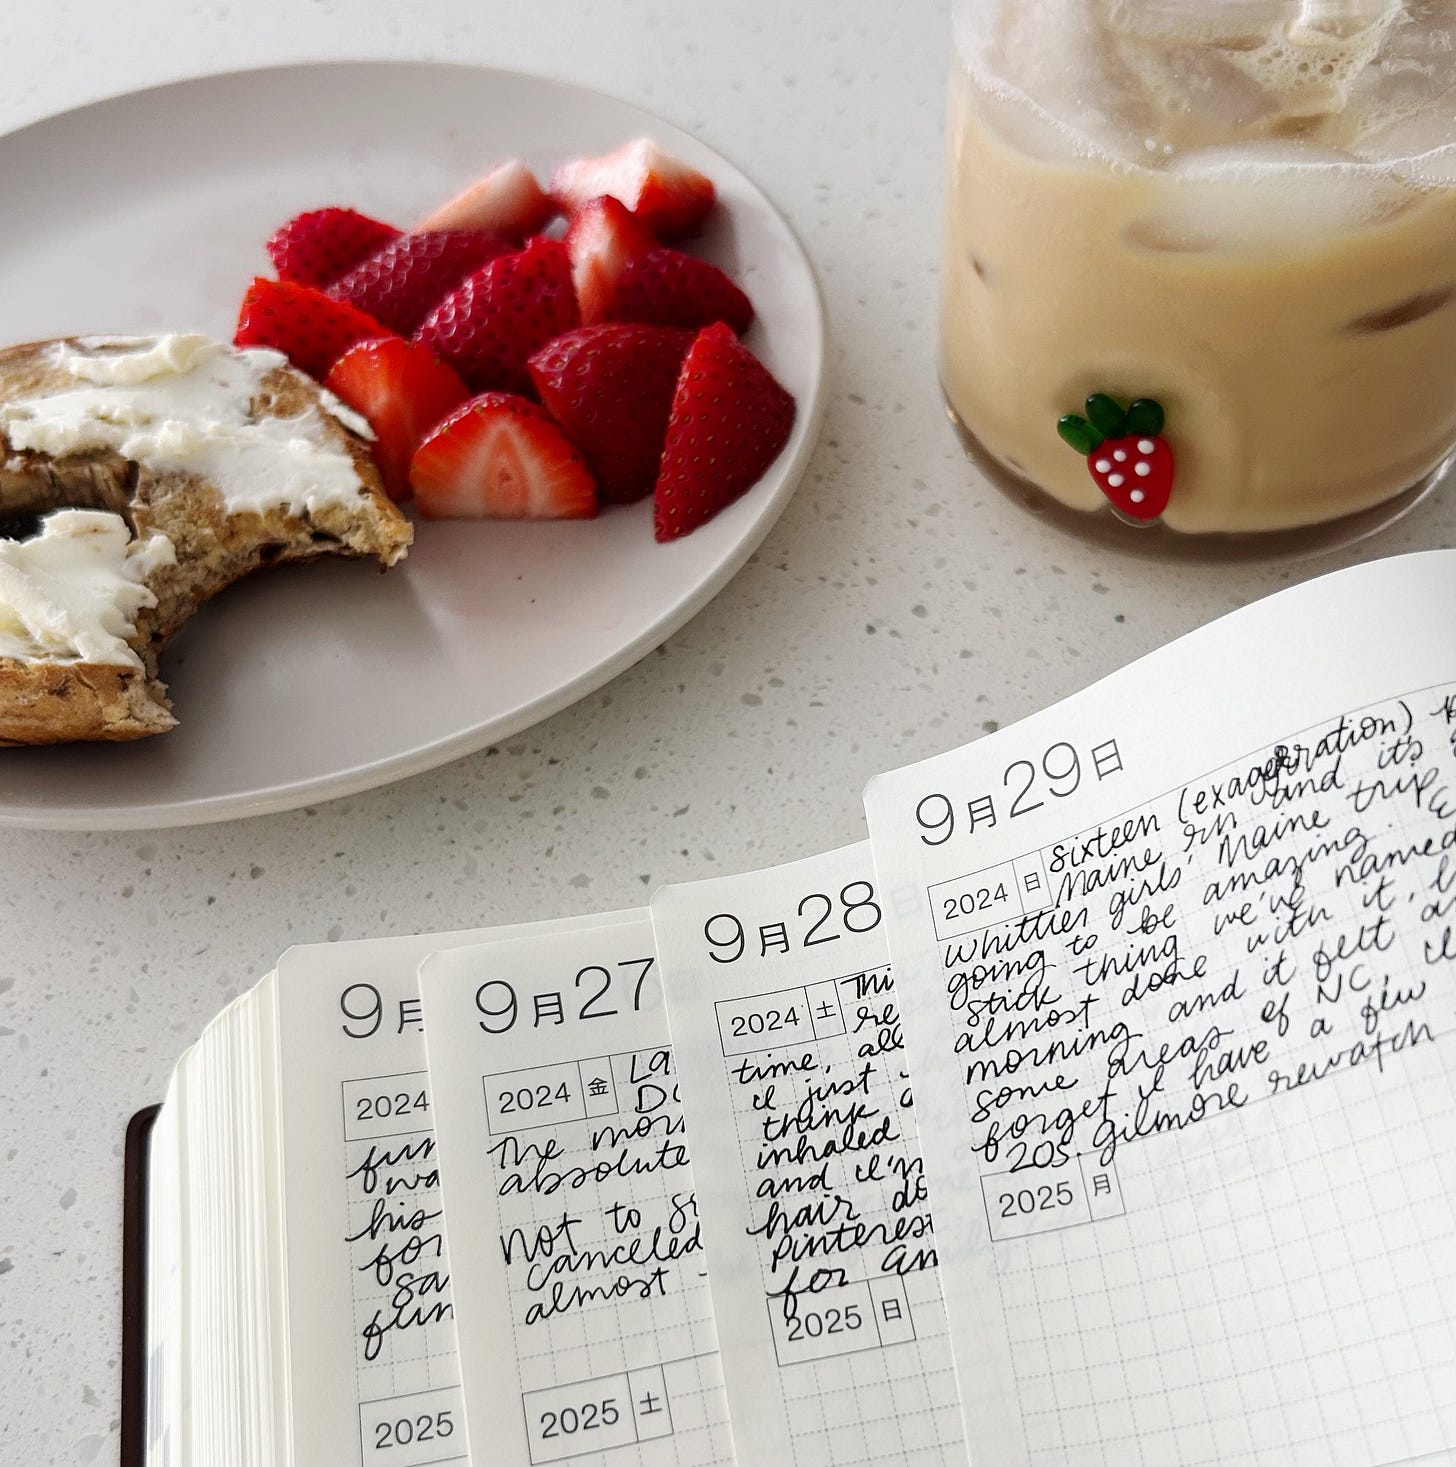 9月
2024
fun
wa
his
for
sa
fun
2025
9月27
2024 金
La
Do
The mor
absolute
Not to
canceled
almost
2025 土
9月28
2024 土
Thi
re
time, all
I just
think
inhaled
and I'm
hair do
Pinterest
for an
2025 日
9月29日
2024 日
sixteen (exaggerration)
Maine rn and it's
whittier girls' Maine trip
going to be amazing.
stick thing we've named
almost done with it,
morning and it felt
some areas of NC,
forget I have a few
20s. gilmore rewatch
2025 月